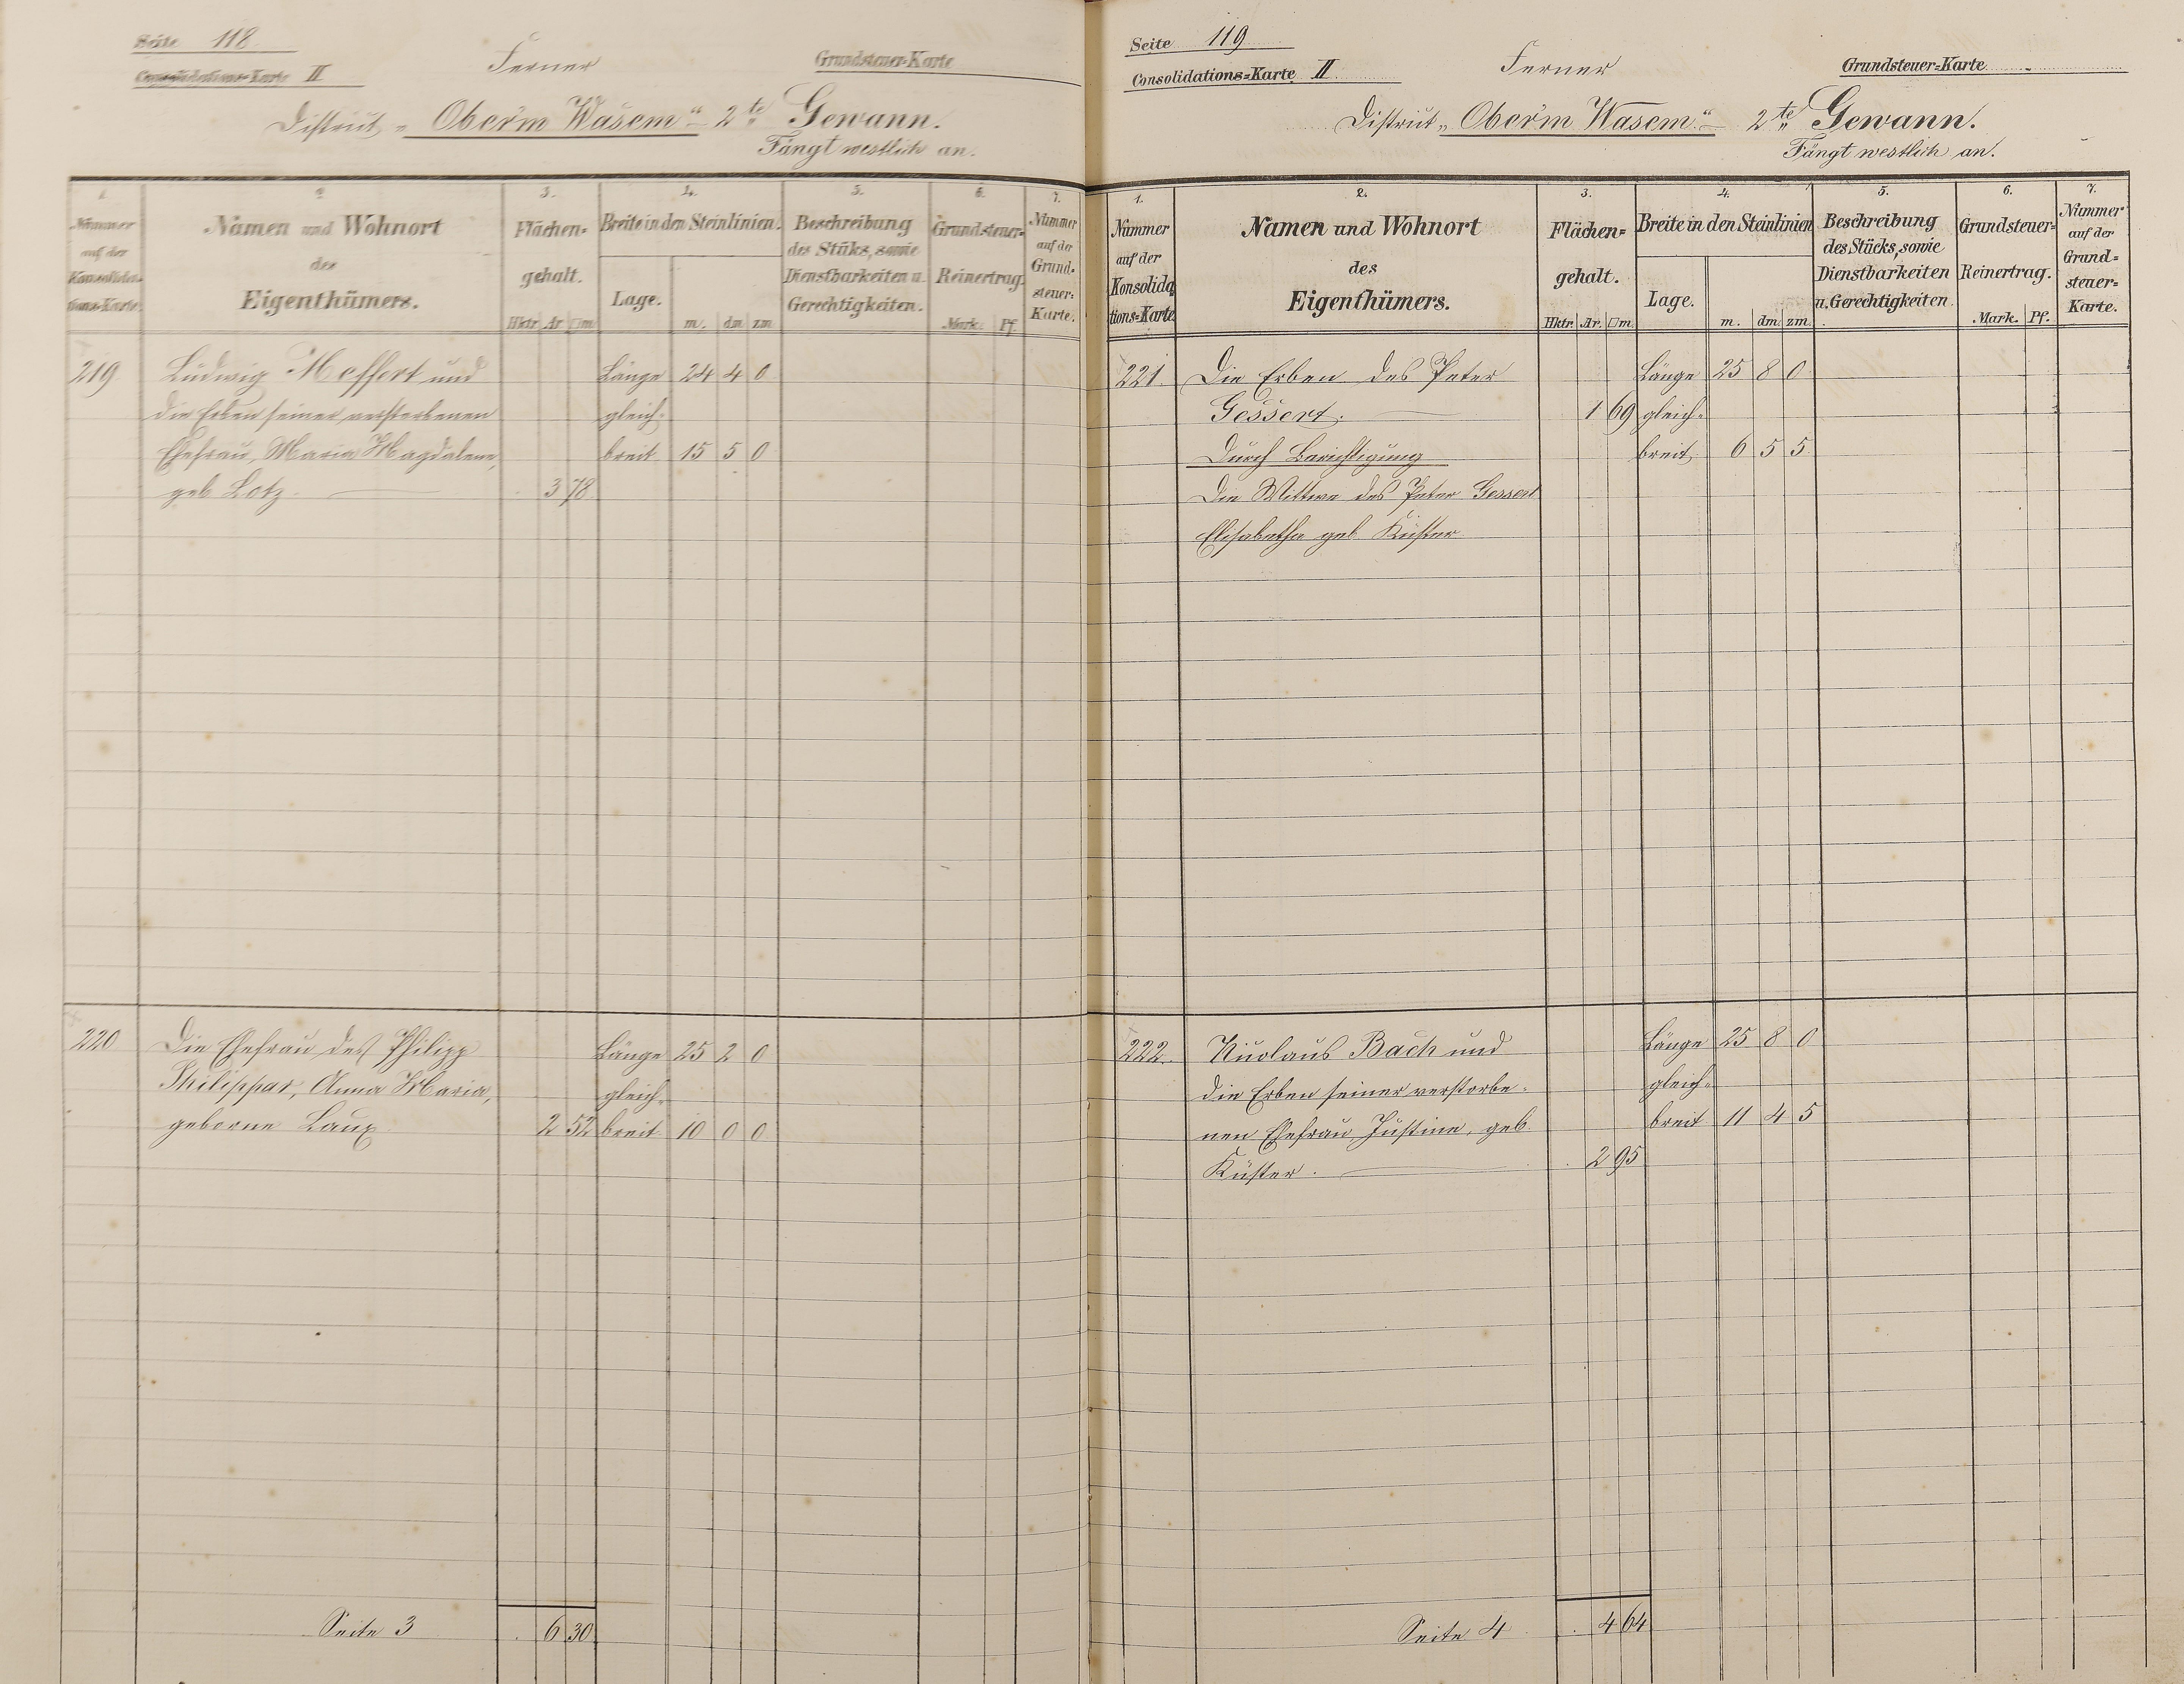 Seite 118
Consolidations-Karte II
Ferner
Grundsteuer-Karte
District „Ober'm Wasem" – 2te Gewann.
Fängt westlich an.
1.
Nummer
auf der
Konsolida-
tions-Karte.
2.
Namen und Wohnort
des
Eigenthümers.
3.
Flächen-
gehalt.
Hktr. Ar □m
4.
Breite in den Steinlinien.
Lage.
m. dm zm
5.
Beschreibung
des Stüks, sowie
Dienstbarkeiten u.
Gerechtigkeiten.
6.
Grundsteuer-
Reinertrag.
Mark. Pf.
7.
Nummer
auf der
Grund-
steuer-
Karte.
219 Ludwig Meffert und Länge 24 4 0
die Erben seiner verstorbenen gleich-
Ehefrau, Maria Magdalena, breit 15 5 0
geb. Lotz. 3 78
220 Die Ehefrau des Philipp Länge 25 2 0
Philippar, Anna Maria, gleich-
geborne Laux 2 52 breit 10 0 0
Seite 3 . 6 30
Seite 119
Consolidations-Karte II
Ferner
Grundsteuer-Karte
District „Ober'm Wasem." – 2te Gewann.
Fängt westlich an.
1.
Nummer
auf der
Konsolida
tions-Karte
2.
Namen und Wohnort
des
Eigenthümers.
3.
Flächen-
gehalt.
Hktr. Ar. □m.
4.
Breite in den Steinlinien
Lage.
m. dm. zm.
5.
Beschreibung
des Stücks, sowie
Dienstbarkeiten
u. Gerechtigkeiten.
6.
Grundsteuer-
Reinertrag.
Mark. Pf.
7.
Nummer
auf der
Grund-
steuer-
Karte.
221. Die Erben des Peter Länge 25 8 0
Gessert. 1 69 gleich-
Durch Berichtigung breit 6 5 5
Die Wittwe des Peter Gessert
Elisabetha geb. Küster
222. Nicolaus Bach und Länge 25 8 0
die Erben seiner verstorbe- gleich-
nen Ehefrau Justine, geb. breit 11 4 5
Küster. . 2 95
Seite 4 . 4 64